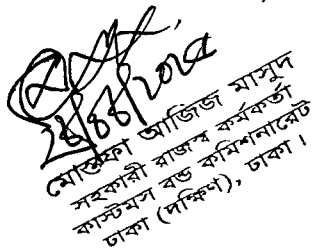 মোস্তফা আজিজ মাসুদ
সহকারী রাজস্ব কর্মকর্তা
কাস্টমস বন্ড কমিশনারেট
ঢাকা (দক্ষিণ), ঢাকা।